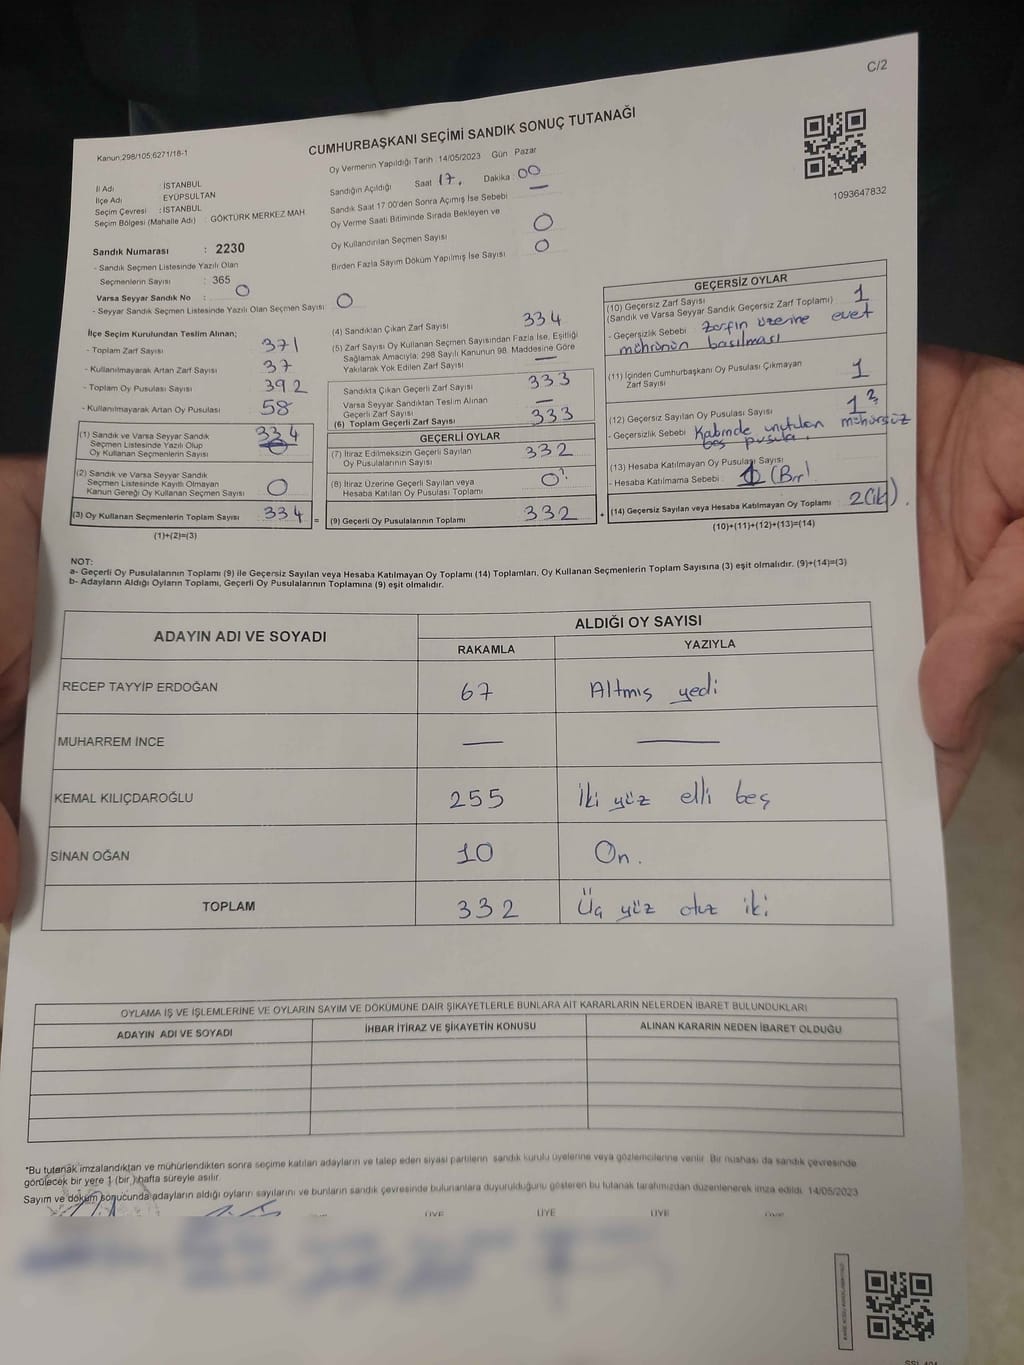 C/2
Kanun:298/105;6271/18-1
CUMHURBAŞKANI SEÇİMİ SANDIK SONUÇ TUTANAĞI
1093647832
Oy Vermenin Yapıldığı Tarih : 14/05/2023 Gün Pazar
Sandığın Açıldığı Saat 17. Dakika : 00
Sandık Saat 17:00'den Sonra Açımış İse Sebebi —
Oy Verme Saati Bitiminde Sırada Bekleyen ve
Oy Kullandırılan Seçmen Sayısı 0
Birden Fazla Sayım Döküm Yapılmış İse Sayısı 0
İl Adı : İSTANBUL
İlçe Adı EYÜPSULTAN
Seçim Çevresi : İSTANBUL
Seçim Bölgesi (Mahalle Adı) : GÖKTÜRK MERKEZ MAH
Sandık Numarası : 2230
- Sandık Seçmen Listesinde Yazılı Olan
Seçmenlerin Sayısı : 365
Varsa Seyyar Sandık No : 0
- Seyyar Sandık Seçmen Listesinde Yazılı Olan Seçmen Sayısı: 0
İlçe Seçim Kurulundan Teslim Alınan;
- Toplam Zarf Sayısı 371
- Kullanılmayarak Artan Zarf Sayısı 37
- Toplam Oy Pusulası Sayısı 392
- Kullanılmayarak Artan Oy Pusulası 58
(1) Sandık ve Varsa Seyyar Sandık
Seçmen Listesinde Yazılı Olup
Oy Kullanan Seçmenlerin Sayısı 334
(2) Sandık ve Varsa Seyyar Sandık
Seçmen Listesinde Kayıtlı Olmayan
Kanun Gereği Oy Kullanan Seçmen Sayısı 0
(3) Oy Kullanan Seçmenlerin Toplam Sayısı 334 =
(1)+(2)=(3)
(4) Sandıktan Çıkan Zarf Sayısı 334
(5) Zarf Sayısı Oy Kullanan Seçmen Sayısından Fazla İse, Eşitliği
Sağlamak Amacıyla; 298 Sayılı Kanunun 98. Maddesine Göre
Yakılarak Yok Edilen Zarf Sayısı —
Sandıkta Çıkan Geçerli Zarf Sayısı 333
Varsa Seyyar Sandıktan Teslim Alınan
Geçerli Zarf Sayısı —
(6) Toplam Geçerli Zarf Sayısı 333
GEÇERLİ OYLAR
(7) İtiraz Edilmeksizin Geçerli Sayılan
Oy Pusulalarının Sayısı 332
(8) İtiraz Üzerine Geçerli Sayılan veya
Hesaba Katılan Oy Pusulası Toplamı 0
(9) Geçerli Oy Pusulalarının Toplamı 332 +
GEÇERSİZ OYLAR
(10) Geçersiz Zarf Sayısı
(Sandık ve Varsa Seyyar Sandık Geçersiz Zarf Toplamı) 1
- Geçersizlik Sebebi Zarfın üzerine evet
mührünün basılması
(11) İçinden Cumhurbaşkanı Oy Pusulası Çıkmayan
Zarf Sayısı 1
(12) Geçersiz Sayılan Oy Pusulası Sayısı 1
- Geçersizlik Sebebi Kabinde unutulan mühürsüz
boş pusula.
(13) Hesaba Katılmayan Oy Pusulası Sayısı
- Hesaba Katılmama Sebebi :
(14) Geçersiz Sayılan veya Hesaba Katılmayan Oy Toplamı 2(iki).
(10)+(11)+(12)+(13)=(14)
NOT:
a- Geçerli Oy Pusulalarının Toplamı (9) ile Geçersiz Sayılan veya Hesaba Katılmayan Oy Toplamı (14) Toplamları, Oy Kullanan Seçmenlerin Toplam Sayısına (3) eşit olmalıdır. (9)+(14)=(3)
b- Adayların Aldığı Oyların Toplamı, Geçerli Oy Pusulalarının Toplamına (9) eşit olmalıdır.
ADAYIN ADI VE SOYADI ALDIĞI OY SAYISI
RAKAMLA YAZIYLA
RECEP TAYYİP ERDOĞAN 67 Altmış yedi
MUHARREM İNCE — —
KEMAL KILIÇDAROĞLU 255 İki yüz elli beş
SİNAN OĞAN 10 On.
TOPLAM 332 Üç yüz otuz iki
OYLAMA İŞ VE İŞLEMLERİNE VE OYLARIN SAYIM VE DÖKÜMÜNE DAİR ŞİKAYETLERLE BUNLARA AİT KARARLARIN NELERDEN İBARET BULUNDUKLARI
ADAYIN ADI VE SOYADI İHBAR İTİRAZ VE ŞİKAYETİN KONUSU ALINAN KARARIN NEDEN İBARET OLDUĞU
*Bu tutanak imzalandıktan ve mühürlendikten sonra seçime katılan adayların ve talep eden siyasi partilerin sandık kurulu üyelerine veya gözlemcilerine verilir. Bir nüshası da sandık çevresinde
görülecek bir yere 1 (bir) hafta süreyle asılır.
Sayım ve döküm sonucunda adayların aldığı oyların sayılarını ve bunların sandık çevresinde bulunanlara duyurulduğunu gösteren bu tutanak tarafımızdan düzenlenerek imza edildi. 14/05/2023
ÜYE ÜYE ÜYE